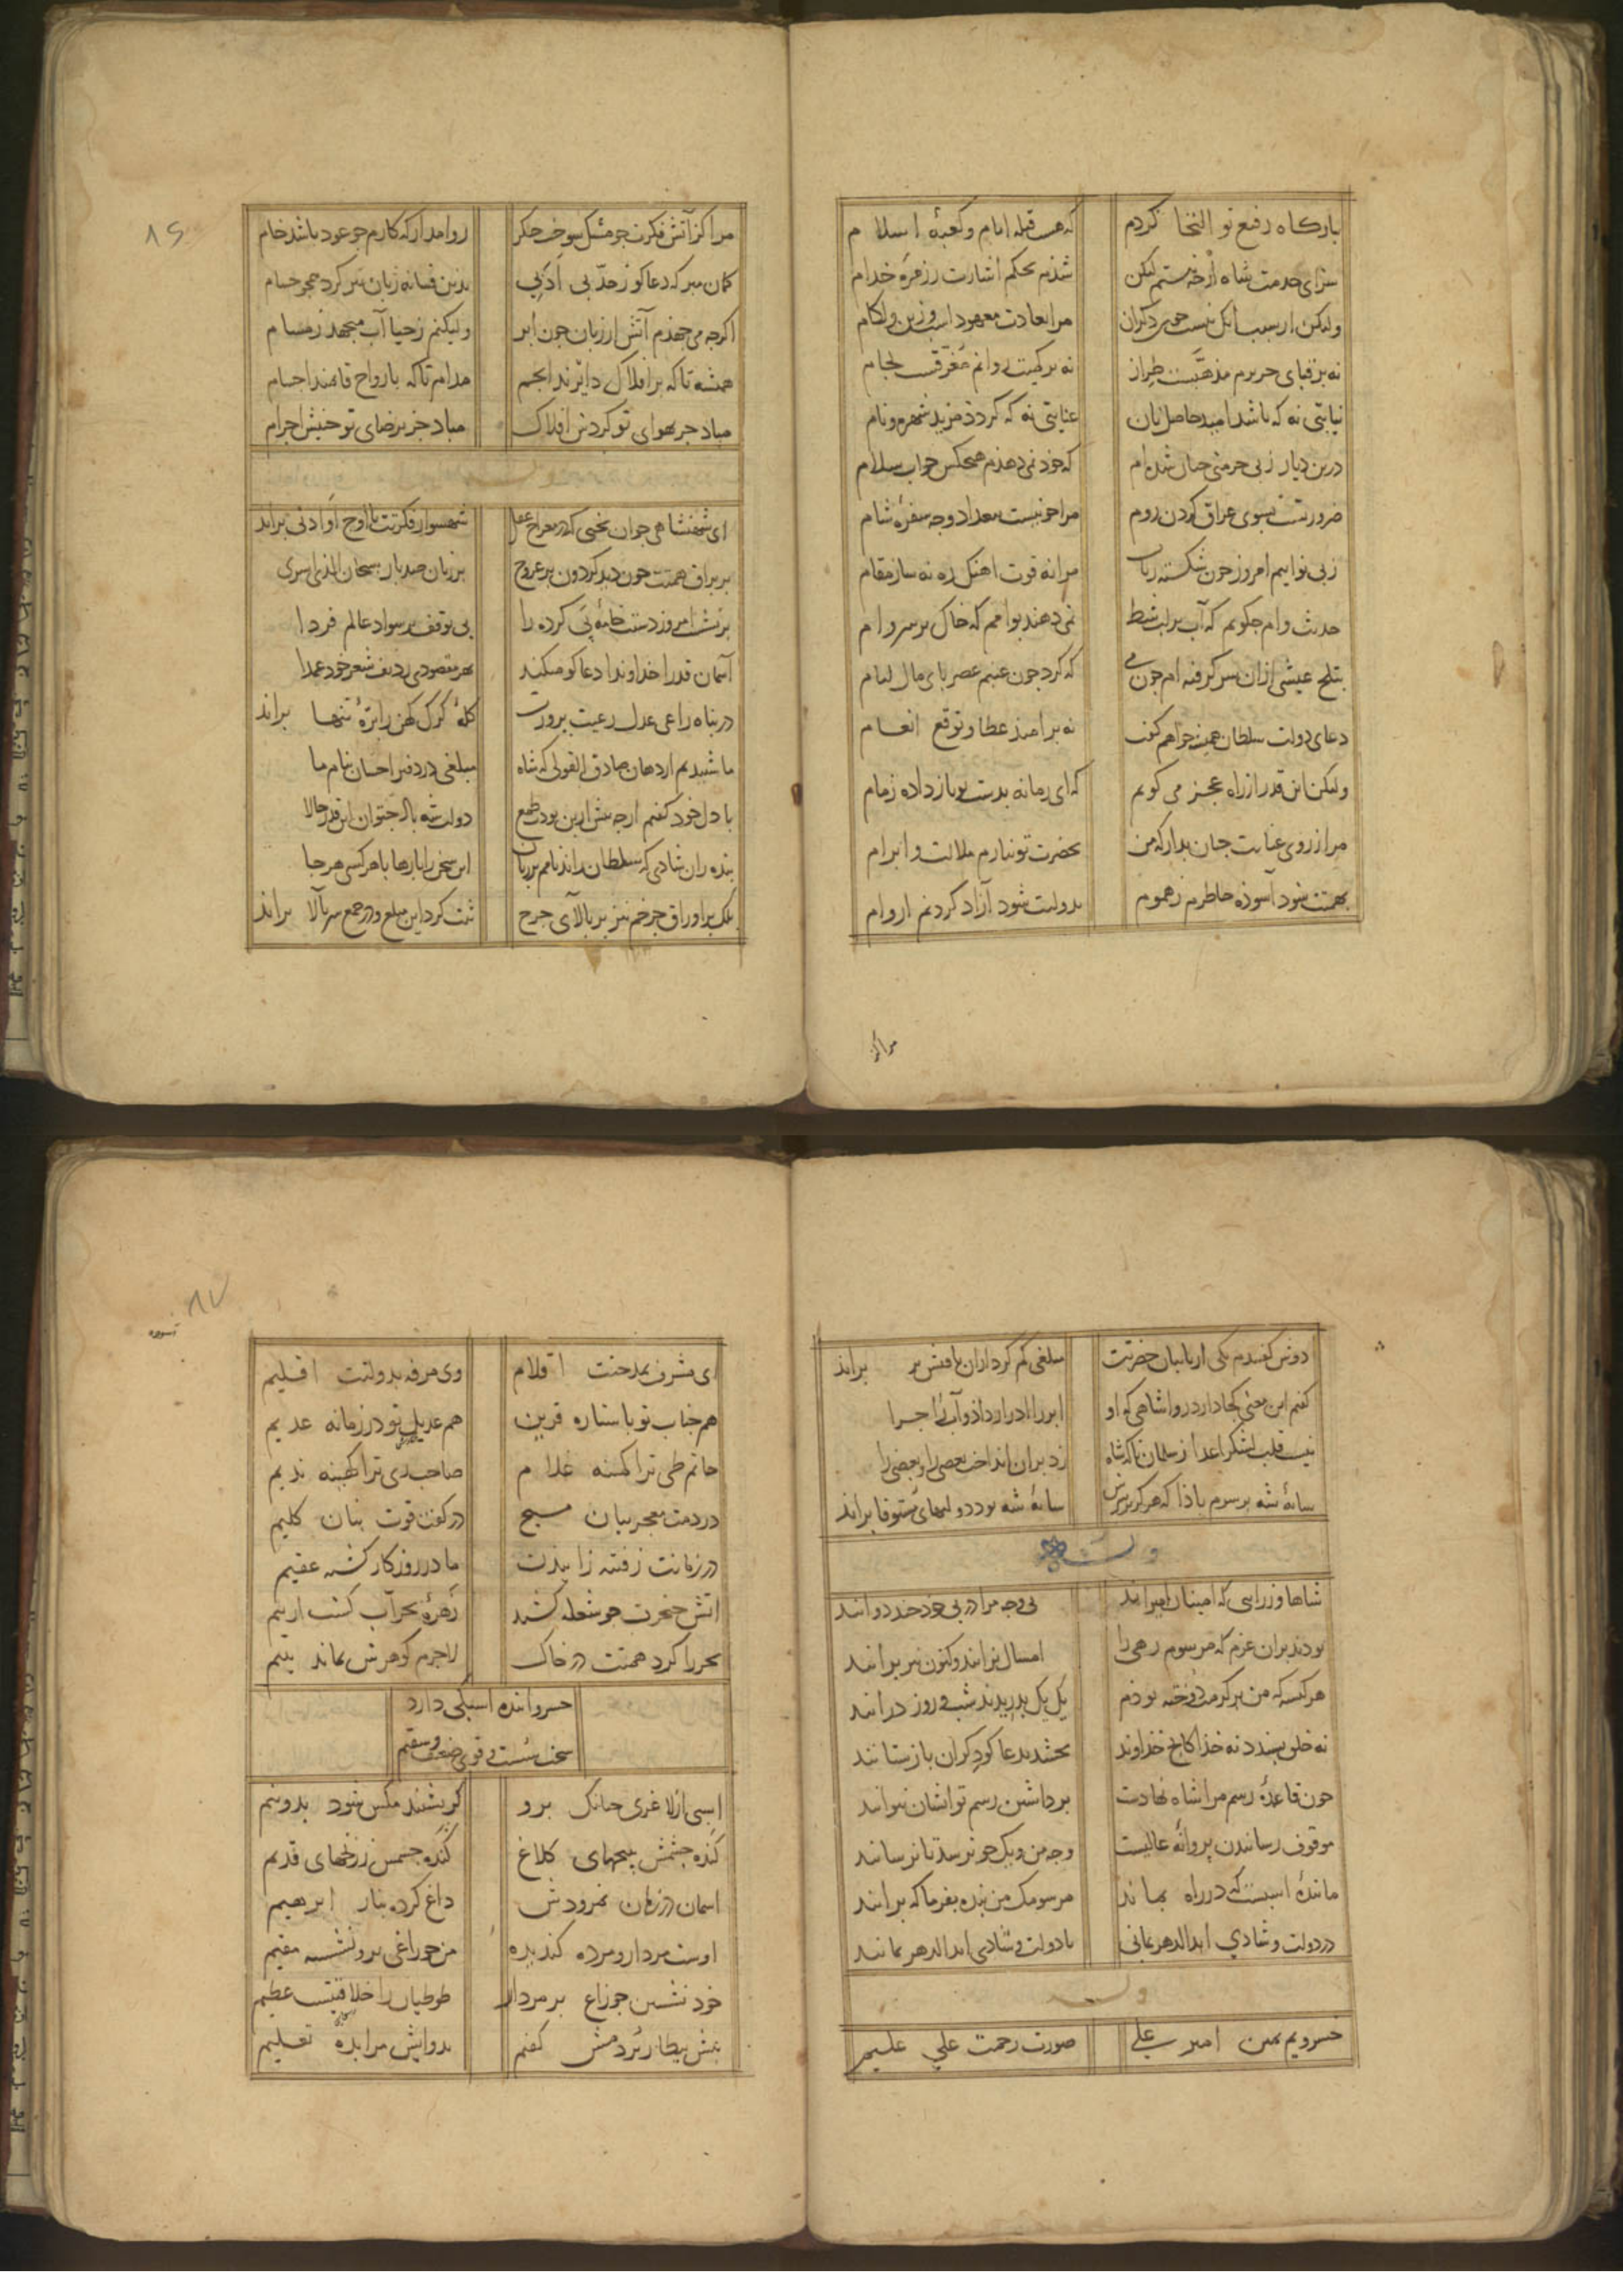 بارکاه رفیع تو التجا کردم که هست قبله انام و کعبهٔ اسلام
سزای خدمت شاه ارچه نیستم لیکن شدم بحکم اشارت ز زمرهٔ خدام
ولیکن اسبابکی نیست چون دکران مرا بعادت معهود اسب و زین و لکام
نه بر قبای حریرم مذهبست طراز نه بر کمیت روانم مغرقست لجام
نیابتی نه که باشد امید حاصل نان عنایتی نه که کردد مزید شهره و نام
درین دیار ز بی حرمتی چنان شده‌ام که خود نمی دهدم هیچکس جواب سلام
ضرورتست بسوی عراق کردن روم مرا چو نیست ببغداد وجه سفرهٔ شام
ز بی نوایم امروز چون شکسته رباب مرا نه قوت اهنک ره نه ساز مقام
حدیث وام چکویم که آب بر لب شط نمی دهند بوامم که خاک بر سر وام
بتلخ عیشی ازان سر کرفته ام چون می که کرد چون عنبم عصر پای مال لیام
دعای دولت سلطان همیشه خواهم کفت نه بر امید عطا و توقع انعام
ولیکن این قدر از راه عجز می کویم که ای زمانه بدست تو باز داده زمام
مرا ز روی عنایت چنان بدار که من بحضرت تو نیارم ملالت و ابرام
بهمتت شود آسوده خاطرم ز هموم بدولتت شود آزاد کردنم از وام
مراکز
۸۶
مرا کز آتش فکرت چو مشک سوخت جکر روا مدار که کارم چو عود باشد خام
کمان مبر که دعاکو ز حد بی ادبی بدین فسانه زبان تیز کرد همچو حسام
اکرچه می جهدم آتش از زبان چون ابر ولیکنم ز حیا آب میجهد ز مسام
همیشه تا که بر افلاک دایرند انجم مدام تا که بارواح قایمند اجسام
مباد جز بهوای تو کردش افلاک مباد جز برضای تو جنبش اجرام
ای شهنشاهی جوان بختی که در معراج عقل شهسوار فکرتت تا اوج او ادنی براند
بر براق همتت چون دید کردون بر عروج بر زبان صد بار سبحان الذی اسری
برنشست امروز دستت خامهٔ پی کرده را بی توقف بر سواد عالم فردا
آسمان قدرا خداوندا دعاکو میکند بهر مقصودی ردیف شعر خود عمدا
در پناه راعی عدل رعیت پرورت کلهٔ کرک کهن را برهٔ تنها براند
ما شنیدیم از دهان صادق القولی که شاه مبلغی در دفتر احسان بنام ما
با دل خود کفتم ارچه بیش ازین بودت طمع دولت شه بالد نتوان این قدر حالا
بنده زان شادی که سلطان راند نامم بر زبان این سخن را بارها با هر کسی هر جا
بلک بر اوراق چرخم نیز بر بالای چرخ ثبت کرد این مبلغ و در جمع سر بالا براند
دوش کفتندم یکی از نایبان حضرتت مبلغی کم کرد از ان براند
کفتم این معنی کجا دارد روا شاهی که او ابر را ادرار داد و آب را اجرا
نیست قلب لشکر اعدا ز سلمان تا که شاه زد بر ان انداخت بعضی را و بعضی را
سایهٔ شه بر سرم بادا که هرکز بر سرش سایهٔ شه بود و دولتهای مستوفا براند
وله
شاها وزرایی که امینان امیرانند بی وجه مرا در پی خود چند دوانند
بودند بران عزم که مرسوم رهی را امسال نرانند و کنون نیز برانند
هر کیسه که من پر کرمت دوخته بودم یک یک بدریدند شب و روز درانند
نه خلق پسندد نه خدا کانچ خداوند بخشد بدعاکو دکران بازستانند
چون قاعدهٔ رسم مرا شاه نهادست برداشتن رسم تو ایشان نتوانند
موقوف رسانیدن پروانهٔ عالیست وجه من و نیک چو نرسد تا نرسانند
مانندهٔ اسبیست که در راه بماند مرسومک من بنده بفرما که برانند
در دولت و شادی ابدالدهر بمانی تا دولت و شادی ابدالدهر بمانند
وله
خسرو یم یمین امیر علی صورت رحمت علی علیم
۸۷
ای مشرف بمدحتت اقلام وی مرفه بدولتت اقلیم
هم جناب تو با ستاره قرین هم عدیل تو در زمانه عدیم
حاتم طی ترا کمینه غلام صاحب ری ترا کهینه ندیم
در دمت معجز بیان مسیح در کفت قوت بنان کلیم
در زمانت ز فتنه زاییدن مادر روزکار کشته عقیم
اتش خنجرت چو شعله کشید زهرهٔ بحر آب کشت از بیم
بحر را کرد همتت در خاک لاجرم کوهرش بماند یتیم
خسروا بنده اسبکی دارد
سخت سست و قوی ضعیف و سقیم
اسبی از لاغری چنانک برو کر نشیند مکس شود بدو نیم
کنده چشمش بنجهای کلاغ کنده جسمش ز زخمهای قدیم
اسمان در زمان نمرودش داغ کرده بنار ابرهیم
اوست مردار و مرده کندیده من چو زاغی برو نشسته مقیم
خود نشستن چو زاغ بر مردار طوطیان را خلاقتیست عظیم
پیش بیطار بردمش کفتم بدوایش مرا بده تعلیم